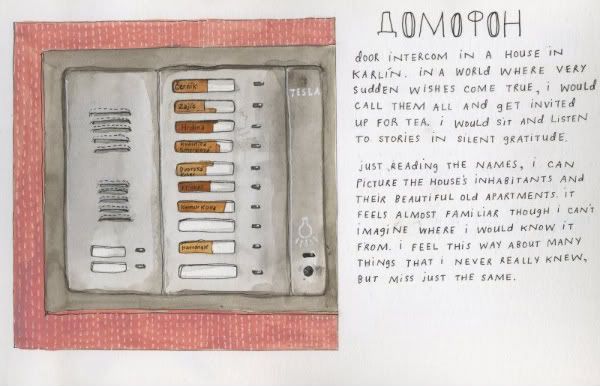 ДОМОФОН
DOOR INTERCOM IN A HOUSE IN
KARLÍN. IN A WORLD WHERE VERY
SUDDEN WISHES COME TRUE, I WOULD
CALL THEM ALL AND GET INVITED
UP FOR TEA. I WOULD SIT AND LISTEN
TO STORIES IN SILENT GRATITUDE.
JUST READING THE NAMES, I CAN
PICTURE THE HOUSE'S INHABITANTS AND
THEIR BEAUTIFUL OLD APARTMENTS. IT
FEELS ALMOST FAMILIAR THOUGH I CAN'T
IMAGINE WHERE I WOULD KNOW IT
FROM. I FEEL THIS WAY ABOUT MANY
THINGS THAT I NEVER REALLY KNEW,
BUT MISS JUST THE SAME.
TESLA
Černík
Zajíc
Hrdina
Dvorský